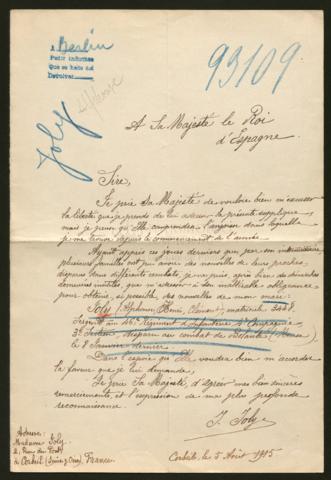 A Berlín
Pedir informes
Que se haga así
Devolver
93109
Joly
A Sa Majesté le Roi
d'Espagne
Sire,
Je prie Sa Majesté de vouloir bien m'excuser
la liberté que je prends de lui adresser la présente supplique,
mais je pense qu'Elle comprendra l'angoisse dans laquelle
je me trouve depuis le commencement de l'année.
Ayant appris ces jours derniers que par son intermédiaire
plusieurs familles ont pu avoir des nouvelles de leurs proches,
disparus dans différents combats, je ne puis, après bien des démarches
demeurées inutiles, que m'adresser à son inaltérable obligeance
pour obtenir, si possible, des nouvelles de mon mari:
Joly (Alphonse, Henri, Clément), matricule
Sergent au 46e Régiment d'Infanterie,
3e disparu au combat de
le 8 Janvier dernier.
Dans l'espoir que Elle voudra bien m'accorder
la faveur que je lui demande,
Je prie Sa Majesté, d'agréer mes bien sincères
remerciements, et l'expression de ma plus profonde
reconnaissance.
J. Joly
Adresse:
Madame Joly
2, Rue du Port
à Corbeil (Seine & Oise) France
Corbeil, le 5 Août 1915